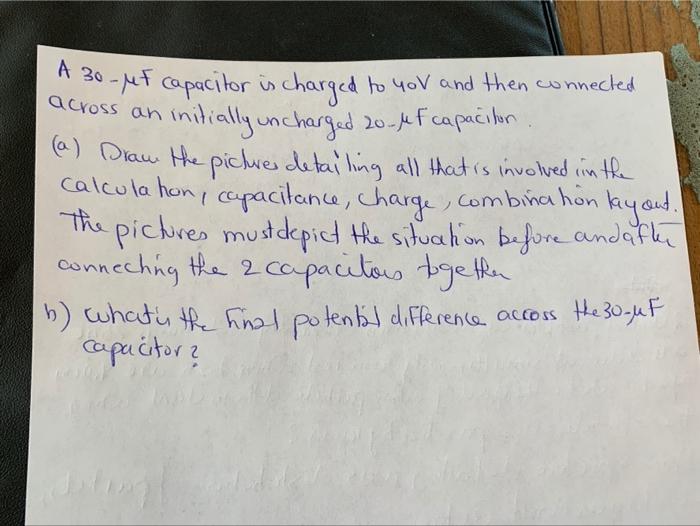 A 30-μF capacitor is charged to 40V and then connected
across an initially uncharged 20-μF capacitor.
(a) Draw the pictures detailing all that is involved in the
calculation, capacitance, charge, combination layout.
The pictures must depict the situation before and after
connecting the 2 capacitors together
b) What is the final potential difference across the 30-μF
capacitor?